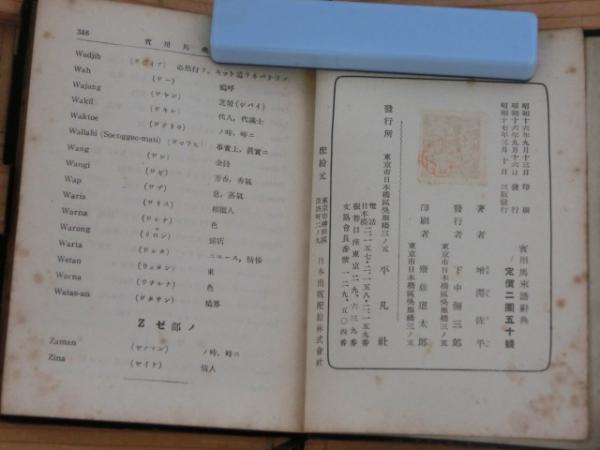 346
實用馬
Wadjib (ワヂイブ)
Wah (ワー) 嗚呼
Wajang (ワヤン) 芝居(シバイ)
Wakil (ワキル) 代人、代議士
Waktoe (ワクトウ) ノ時、時ニ
Wallahi (Soenggoe-mati) 事實上、眞實ニ
Wang (ワン) 金錢
Wangi (ワギ) 芳香、香氣
Wap (ワプ) 息、蒸氣
Waris (ワリス) 相續人
Warna (ワルナ) 色
Warong (ワロン)
Warta (ワルタ) ニュース、情報
Wetan (ウェタン) 東
Worna (ウォルナ) 色
Watas-an (ワタサン) 境界
Z ゼ部ノ
Zaman (ゼアマン) ノ時、時ニ
Zina (ゼイナ) 情人
昭和十六年九月十三日 印刷
昭和十六年九月十六日 發行
昭和十七年三月十日 三版發行
實用馬來語辭典
定價二圓五十錢
著者 増淵佐平
發行者 下中彌三郎
東京市日本橋區呉服橋三ノ五
印刷者 齋藤道太郎
東京市日本橋區呉服橋三ノ五
發行所 東京市日本橋區呉服橋三ノ五 平凡社
電話日本橋二一五七・二一五八・二一五九番
振替口座東京二九、六三九番
文協會員番號一二九、五〇四番
配給元 東京市神田區淡路町二ノ九 日本出版配給株式會社